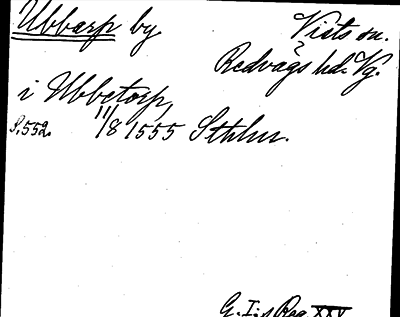 Ubbarp by
Vists sn.
Redvägs hd. Vg.
i Ubbetorp,
S. 552. 11/8 1555 Sthlm.
G. I:s Reg. XXV